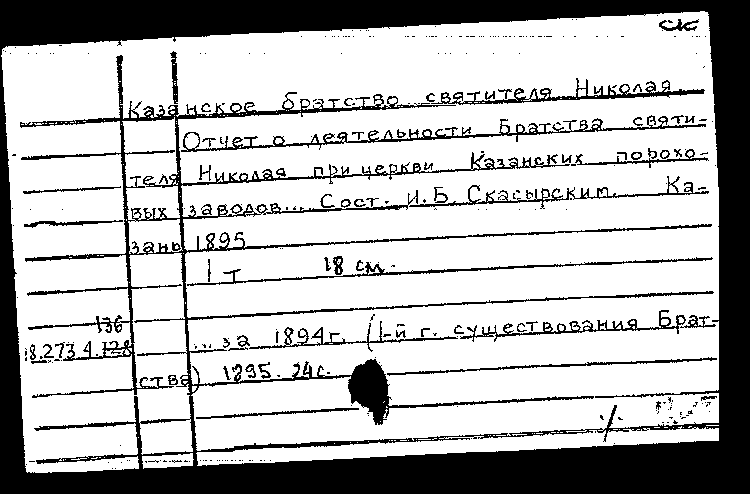 СК
Казанское братство святителя Николая.
Отчет о деятельности Братства святи-
теля Николая при церкви Казанских порохо-
вых заводов... Сост. И.Б. Скасырским. Ка-
зань 1895
1 т 18 см.
136
18.273.4.128
...за 1894г. (1-й г. существования Брат-
ства) 1895. 24с.